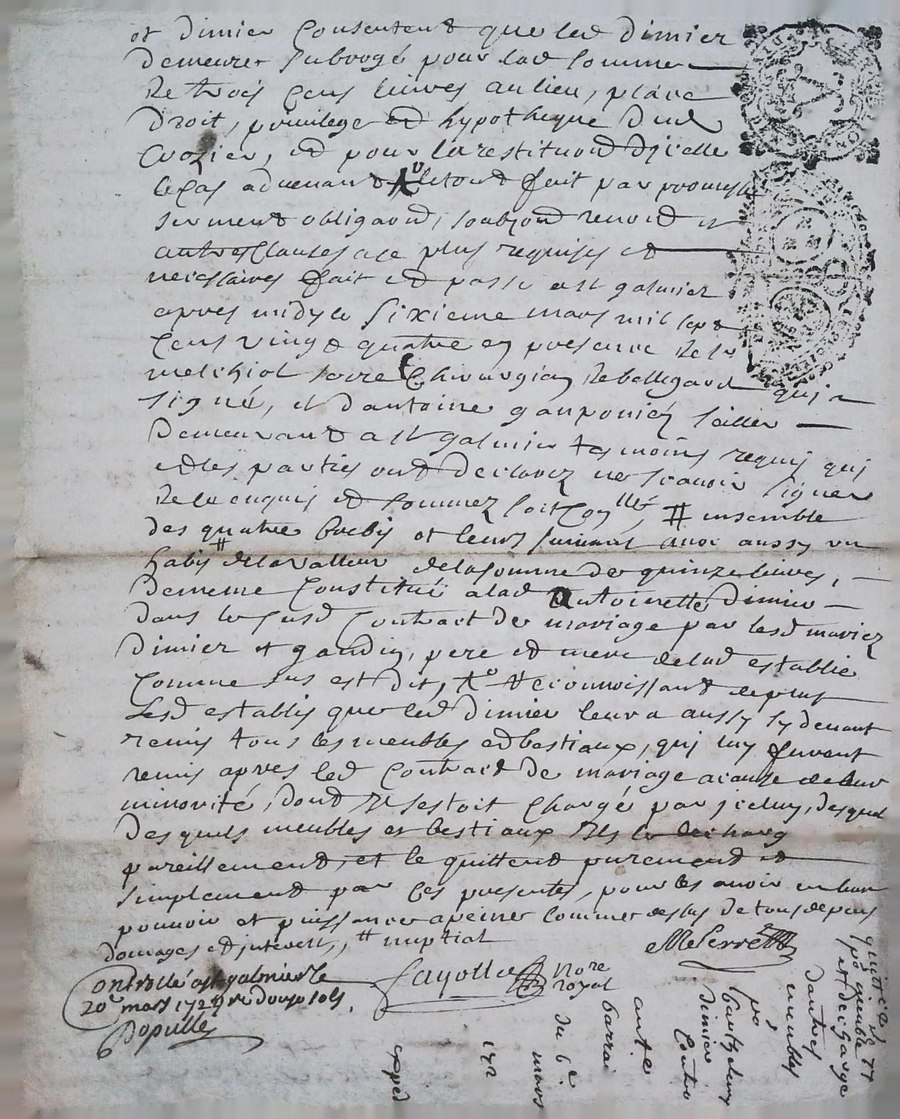 et dimier Consentent que led dimier
demeure Subrogé pour lad somme
De trois Cens livres au lieu, place
Droit, privilege et hypotheque dud
Crozier, et pour la restitution d'icelle
le cas advenant letout fait par promesse
serment obligaon, soubzon renon et
autres Clauses a ce plus requises et
necessaires fait et passé a st galmier
apres midy le Sixieme mars mil sept
Cens vingt quatre en presence De sr
melchiol Chirurgien De bellegarde qui a
signé, et d'antoine
Demeurant a st galmier tesmoins requis qui
et les parties ont declarez ne scavoir signer
De ce enquis et sommez soit Conllé, # ensemble
des quatre brebis et leurs suivant avec aussy un
habit # de la valleur de la somme de quinze livres,
de meme Constitué a lad Antoinette dimier
dans le susd Contract de mariage par lesd mariez
Dimier et gaudin, pere et mere de lad establie
Comme sus est dit, Reconnoissant de plus
Lesd establis que led dimier leur a aussy cy devant
remis tous les meubles et bestiaux, qui luy furent
remis apres led Contract de mariage a cause de leur
minorité, dont il s'estoit Chargé par iceluy, desquel
Des quels meubles et bestiaux Ils le decharg
pareillement, et le quittent purement et
simplement par Ces presentes, pour les avoir en leur
pouvoir et puissance a peine Comme dessus de tous depens
domages et interest, # nuptial
Controllé a st galmier le
20e mars 1724 re douze sols
Dopuille
Fayolle
Nore
royal
quittance
et decharge
d'autres
meubles
po
barthelemy
dimier
Contre
ante
barrai
du 6e
mars
172
exped